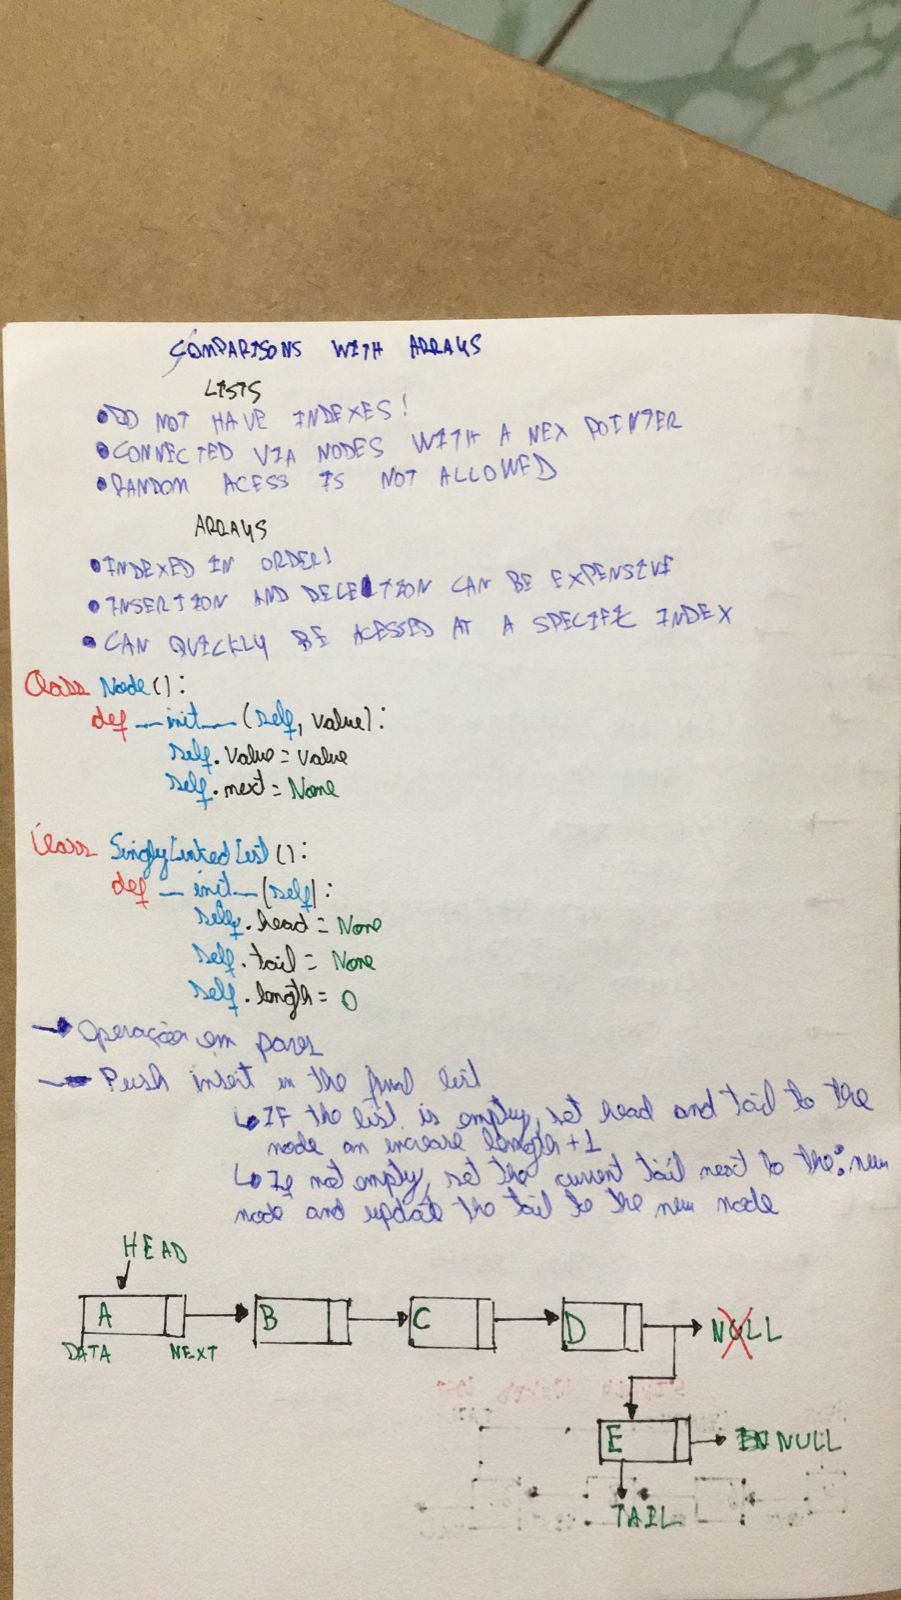 COMPARISONS WITH ARRAYS
LISTS
• DO NOT HAVE INDEXES!
• CONNECTED VIA NODES WITH A NEX POINTER
• RANDOM ACESS IS NOT ALLOWED
ARRAYS
• INDEXED IN ORDER!
• INSERTION AND DELELTION CAN BE EXPENSIVE
• CAN QUICKLY BE ACESSED AT A SPECIFIC INDEX
Class Node():
def __init__(self, value):
self.value = value
self.next = None
Class SinglyLinkedList():
def __init__(self):
self.head = None
self.tail = None
self.length = 0
→ Operação em
→ Push insert in the final list
↳ IF the list is empty, set head and tail to the
node an increase length +1
↳ If not empty, set the current tail next to the: new
node and update the tail to the new node
HEAD
A B C D NULL
DATA NEXT
E NULL
TAIL